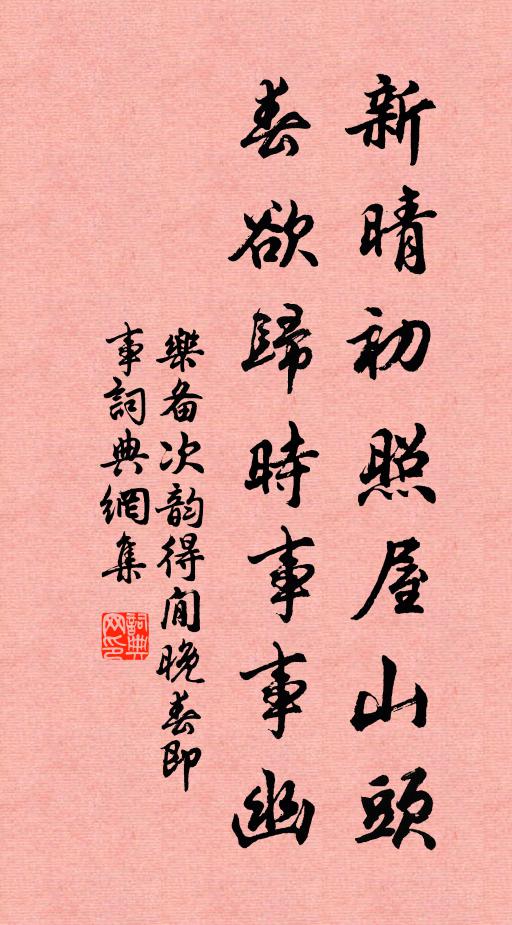 新晴初照屋山頭
春欲歸時事事幽
樂备次韵得闲晚春即
事詞典網集
詞典
网印